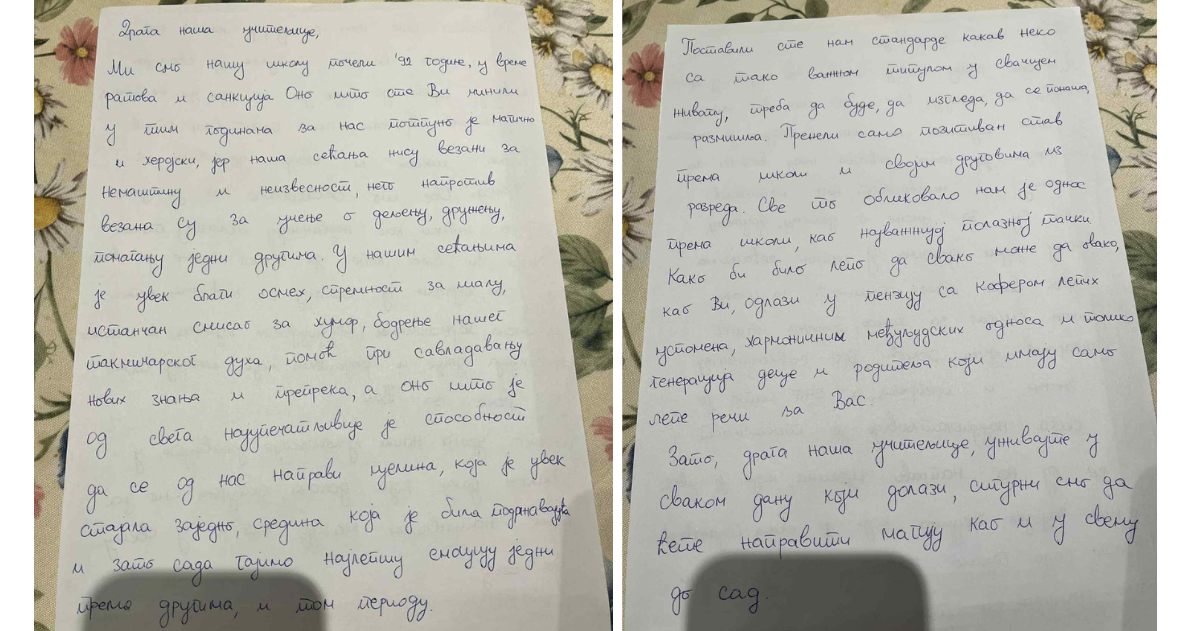 Драга наша учитељице,
Ми смо нашу школу почели '92 године, у време
ратова и санкција Оно што сте Ви чинили
у тим годинама за нас потпуно је магично
и херојски, јер наша сећања нису везани за
немаштину и неизвесност, него напротив
везана су за учење о дељењу, дружењу,
помагању једни другима. У нашим сећањима
је увек благи осмех, стремност за шалу,
истанчан смисао за хумор, бодрење нашег
такмичарског духа, помоћ при савладавању
нових знања и препрека, а оно што је
од свега најупечатљивије је способност
да се од нас направи целина, која је увек
стајала заједно, средина која је била подржавајућа
и зато сада гајимо најлепшу емоцију једни
према другима, и том периоду.
Поставили сте нам стандарде какав неко
са тако важном титулом у свачијем
животу, треба да буде, да изгледа, да се понаша,
размишља. Пренели само позитиван став
према школи и својим друговима из
разреда. Све то обликовало нам је однос
према школи, као најважнијој полазној тачки
Како би било лепо да свако може да овако,
као Ви, одлази у пензију са кофером лепих
успомена, хармоничних међуљудских односа и толико
генерација деце и родитеља који имају само
лепе речи за Вас.
Зато, драга наша учитељице, уживајте у
сваком дану који долази, сигурни смо да
ћете направити магију као и у свему
до сад.